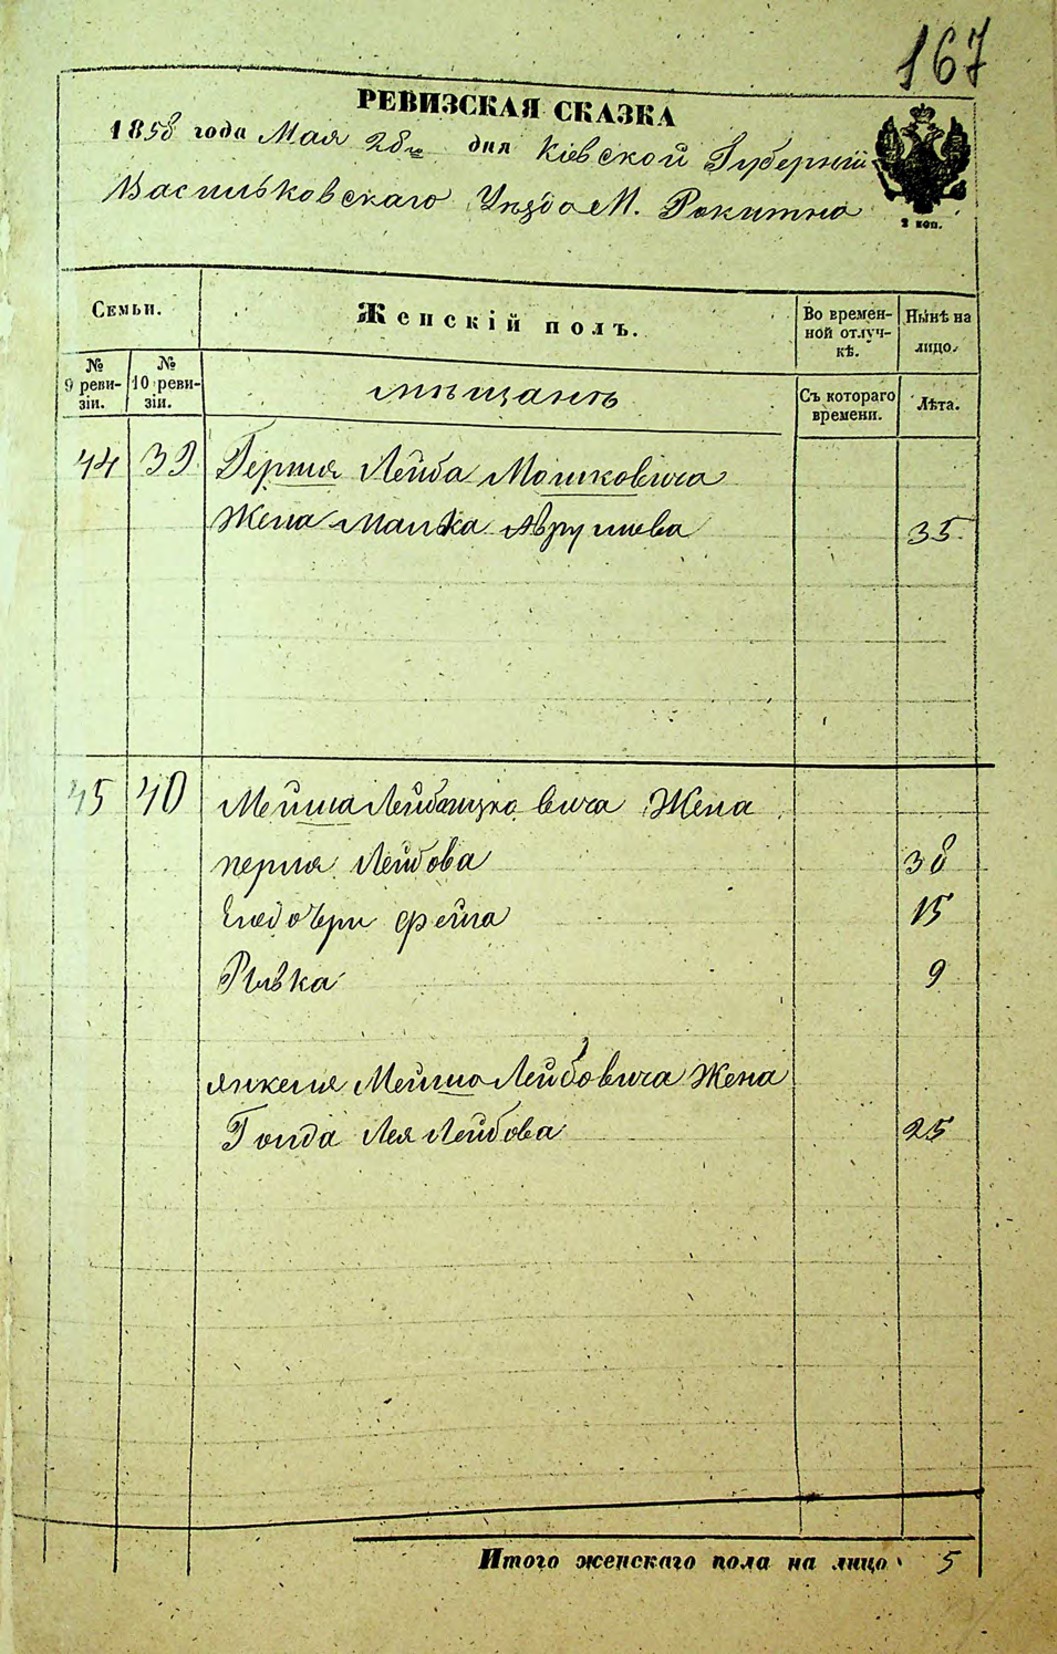 167
РЕВИЗСКАЯ СКАЗКА
1858 года Мая 28го дня Кіевской Губерніи
Васильковскаго Уѣзда М. Рокитна
2 коп.
Семьи.
Женскій полъ.
Во времен-
ной отлуч-
кѣ.
Нынѣ на
лицо.
№
9 реви-
зіи.
№
10 реви-
зіи.
мѣщанъ
Съ котораго
времени.
Лѣта.
44 39 Гершя Лейба Мошковича
Жена Малка Аврумова 35
45 40 Мейша Лейбашко вича Жена
перля Лейбова 38
Фейга 15
Ривка 9
янкеля Мейша Лейбовича Жена
Голда Лея Лейбова 25
Итого женскаго пола на лицо 5